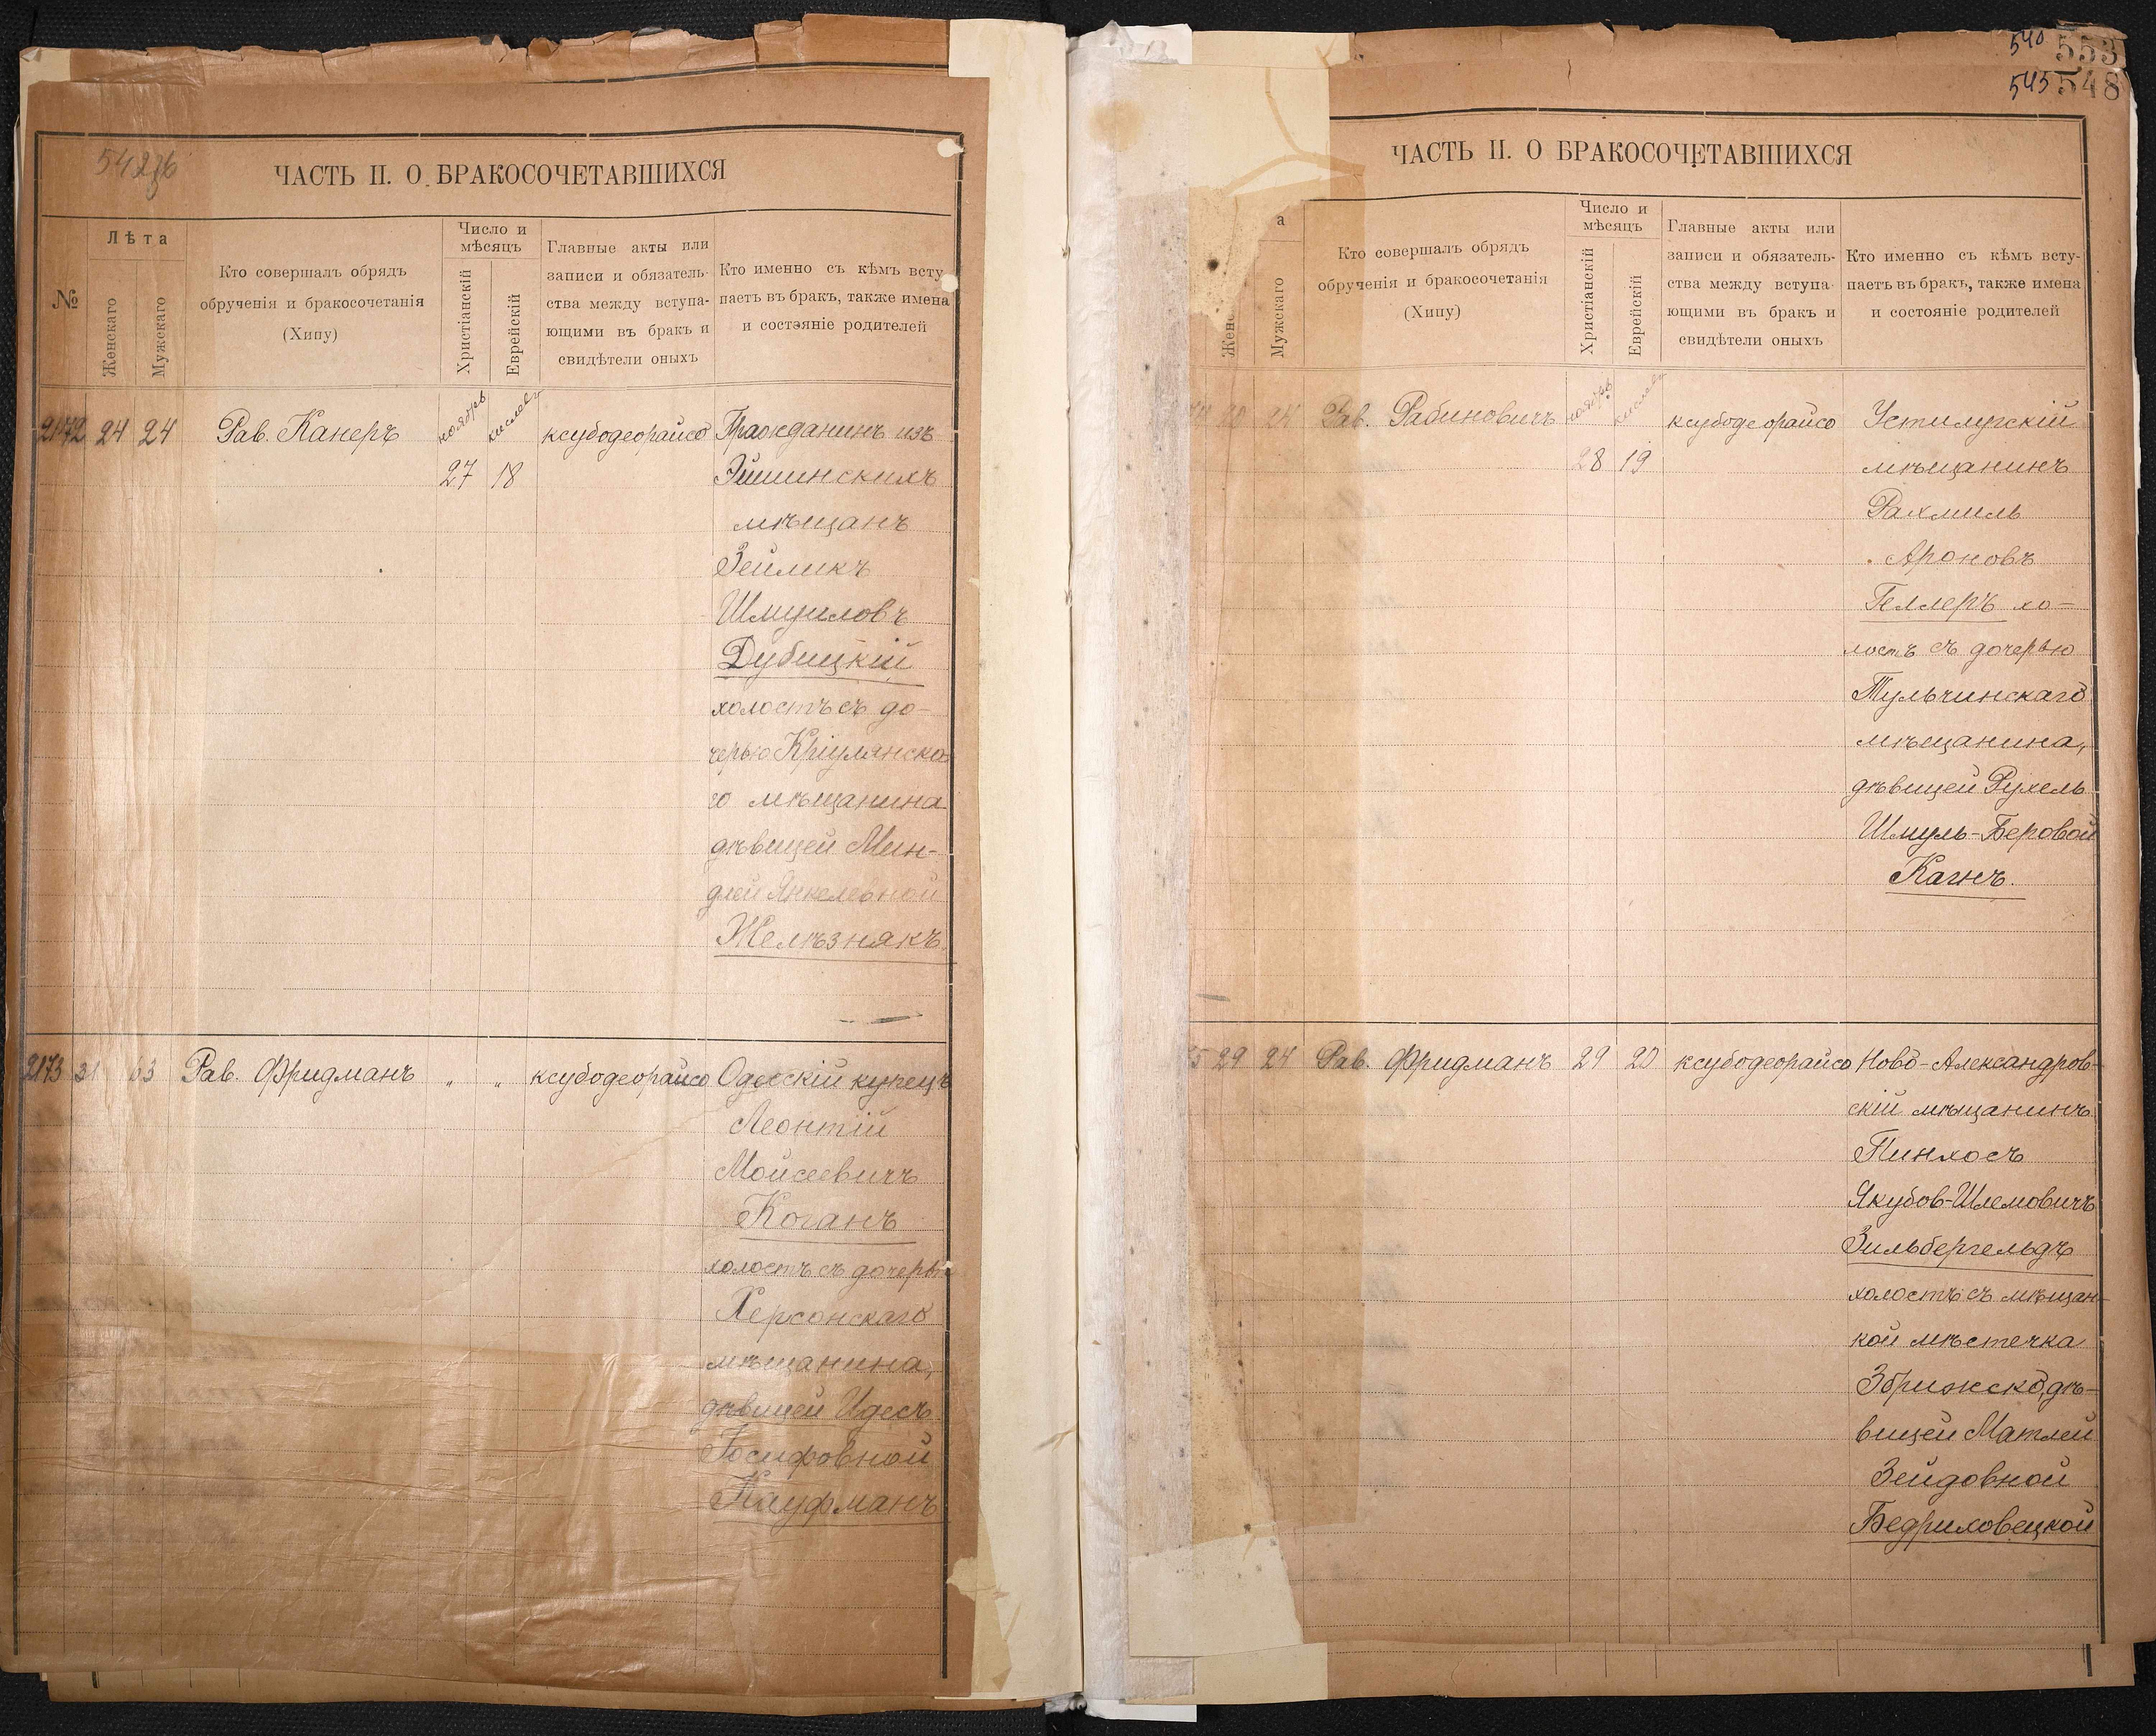 540 553
545 548
ЧАСТЬ II. О БРАКОСОЧЕТАВШИХСЯ
№
Лѣта
Женскаго
Мужскаго
Кто совершалъ обрядъ
обрученія и бракосочетанія
(Хипу)
Число и
мѣсяцъ
Христіанскій
Еврейскій
Главные акты или
записи и обязатель-
ства между вступа-
ющими въ бракъ и
свидѣтели оныхъ
Кто именно съ кѣмъ всту
паетъ въ бракъ, также имена
и состояніе родителей
2172 24 24 Рав. Канеръ ноябрь кислевъ ксубодеорайсо Гражданинъ изъ
27 18 Эйшинскихъ
мѣщанъ
Зейликъ
Шмуиловъ
Дубицкій
холостъ съ до-
черью Кріулянска
го мѣщанина
дѣвицей Мин-
длей Янкелевной
Желѣзнякъ
2173 31 63 Рав. Фридманъ " " ксубодеорайсо Одесскій купецъ
Леонтій
Мойсеевичъ
Коганъ
холостъ съ дочерью
Херсонскаго
мѣщанина,
дѣвицей Идесъ
Іосифовной
Кауфманъ
ЧАСТЬ II. О БРАКОСОЧЕТАВШИХСЯ
а
Женс
Мужскаго
Кто совершалъ обрядъ
обрученія и бракосочетанія
(Хипу)
Число и
мѣсяцъ
Христіанскій
Еврейскій
Главные акты или
записи и обязатель-
ства между вступа-
ющими въ бракъ и
свидѣтели оныхъ
Кто именно съ кѣмъ всту-
паетъ въ бракъ, также имена
и состояніе родителей
20 24 Рав. Рабиновичъ ноябрь кислевъ ксубодеорайсо Устилугскій
28 19 мѣщанинъ
Рахмиль
Ароновъ
Геллеръ хо-
лостъ съ дочерью
Тульчинскаго
мѣщанина,
дѣвицей Рухель
Шмуль-Беровой
Каћнъ.
5 29 24 Рав. Фридманъ 29 20 ксубодеорайсо Ново-Александров-
скій мѣщанинъ
Пинхосъ
Якубов-Шлемовичъ
Зильбергельдъ
холостъ съ мѣщан-
кой мѣстечка
Збрижско, дѣ-
вицей Матлей
Зейдовной
Бедриховецкой